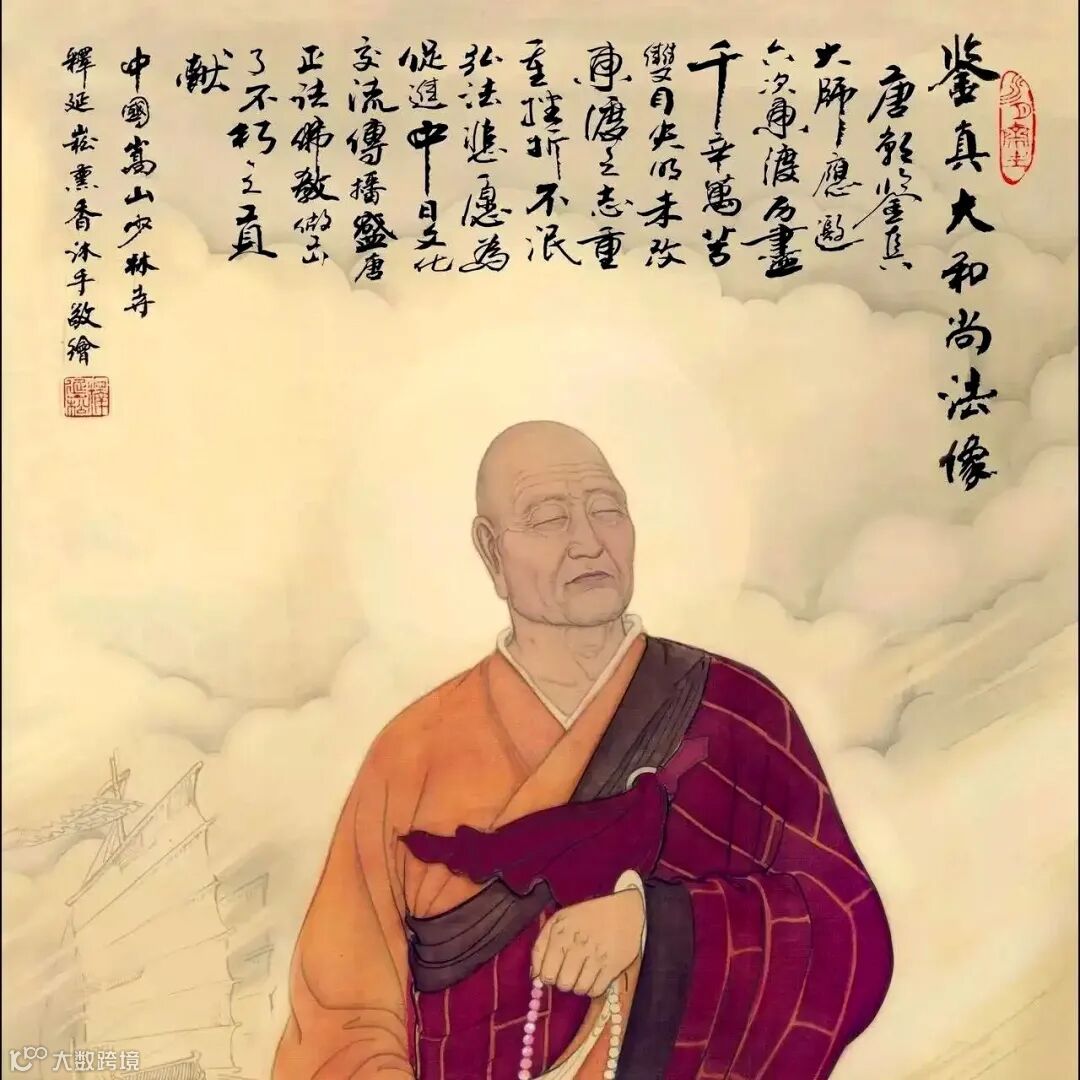 鉴真大和尚法像
唐朝鉴真
大师應邀
六次東渡历盡
千辛萬苦
雙目失明未改
東渡之志重
重挫折不泯
弘法悲愿為
促進中日文化
交流傳播盛唐
正法佛教做出
了不朽之貢
献
中國嵩山少林寺
釋延崧熏香沐手敬繪
大数跨境